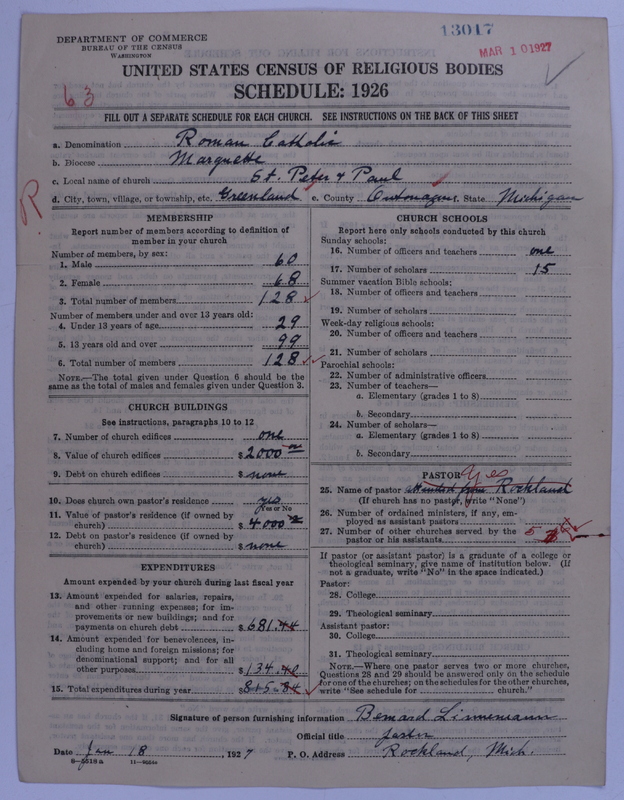 13017
MAR 10 1927
DEPARTMENT OF COMMERCE
BUREAU OF THE CENSUS
WASHINGTON
UNITED STATES CENSUS OF RELIGIOUS BODIES
SCHEDULE: 1926
63
FILL OUT A SEPARATE SCHEDULE FOR EACH CHURCH. SEE INSTRUCTIONS ON THE BACK OF THIS SHEET
a. Denomination Roman Catholic
b. Diocese Marquette
c. Local name of church St. Peter & Paul
d. City, town, village, or township, etc. Greenland e. County Ontonagon State Michigan
R
MEMBERSHIP
Report number of members according to definition of
member in your church
Number of members, by sex:
1. Male 60
2. Female 68
3. Total number of members 128
Number of members under and over 13 years old:
4. Under 13 years of age 29
5. 13 years old and over 99
6. Total number of members 128
NOTE.—The total given under Question 6 should be the
same as the total of males and females given under Question 3.
CHURCH BUILDINGS
See instructions, paragraphs 10 to 12
7. Number of church edifices one
8. Value of church edifices $ 2000 00
9. Debt on church edifices $ none
10. Does church own pastor's residence yes
Yes or No
11. Value of pastor's residence (if owned by
church) $ 4000
12. Debt on pastor's residence (if owned by
church) $ none
EXPENDITURES
Amount expended by your church during last fiscal year
13. Amount expended for salaries, repairs,
and other running expenses; for im-
provements or new buildings; and for
payments on church debt $ 681.44
14. Amount expended for benevolences, in-
cluding home and foreign missions; for
denominational support; and for all
other purposes $ 134.40
15. Total expenditures during year $ 815.84
CHURCH SCHOOLS
Report here only schools conducted by this church
Sunday schools:
16. Number of officers and teachers one
17. Number of scholars 15
Summer vacation Bible schools:
18. Number of officers and teachers
19. Number of scholars
Week-day religious schools:
20. Number of officers and teachers
21. Number of scholars
Parochial schools:
22. Number of administrative officers
23. Number of teachers—
a. Elementary (grades 1 to 8)
b. Secondary
24. Number of scholars—
a. Elementary (grades 1 to 8)
b. Secondary
PASTOR yes
25. Name of pastor attended from Rockland
(If church has no pastor, write "None")
26. Number of ordained ministers, if any, em-
ployed as assistant pastors
27. Number of other churches served by the 5
pastor or his assistants
If pastor (or assistant pastor) is a graduate of a college or
theological seminary, give name of institution below. (If
not a graduate, write "No" in the space indicated.)
Pastor:
28. College
29. Theological seminary
Assistant pastor:
30. College
31. Theological seminary
NOTE.—Where one pastor serves two or more churches,
Questions 28 and 29 should be answered only on the schedule
for one of the churches; on the schedules for the other churches,
write "See schedule for church."
Signature of person furnishing information Bernard Linnemann
Official title Pastor
Date Jan 18, 1927 P. O. Address Rockland, Mich.
8—5518 a